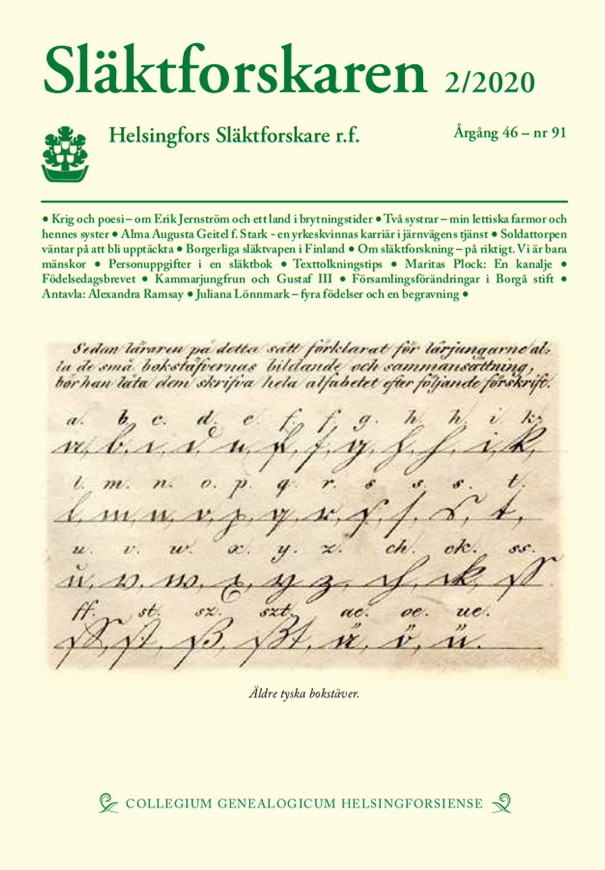 Släktforskaren 2/2020
Helsingfors Släktforskare r.f.
Årgång 46 – nr 91
• Krig och poesi – om Erik Jernström och ett land i brytningstider • Två systrar – min lettiska farmor och
hennes syster • Alma Augusta Geitel f. Stark - en yrkeskvinnas karriär i järnvägens tjänst • Soldattorpen
väntar på att bli upptäckta • Borgerliga släktvapen i Finland • Om släktforskning – på riktigt. Vi är bara
mänskor • Personuppgifter i en släktbok • Texttolkningstips • Maritas Plock: En kanalje •
Födelsedagsbrevet • Kammarjungfrun och Gustaf III • Församlingsförändringar i Borgå stift •
Antavla: Alexandra Ramsay • Juliana Lönnmark – fyra födelser och en begravning •
Sedan läraren på detta sätt förklarat för lärjungarne al-
la de små bokstäfvernas bildande och sammansättning,
bör han låta dem skrifva hela alfabetet efter följande förskrift.
a. b. c. d. e. f. f. g. h. h. i. k.
a, b, c, d, e, f, f, g, h, h, i, k,
l. m. n. o. p. q. r. s s. s. t.
l, m, n, o, p, q, r, s, s, s, t,
u. v. w. x. y. z. ch. ck. ss.
u, v, w, x, y, z, ch, ck, ss.
ff. st. sz. szt. ae. oe. ue.
ff, st, ß, ßt, ä, ö, ü.
Äldre tyska bokstäver.
COLLEGIUM GENEALOGICUM HELSINGFORSIENSE